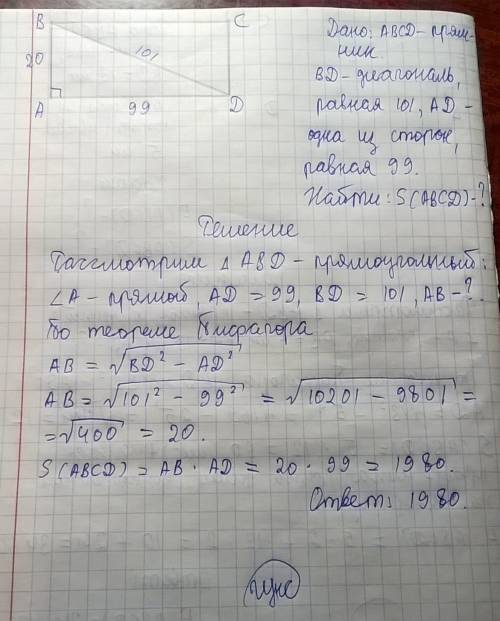 B C
101
20
A 99 D
Дано: ABCD – прям-
ник.
BD – диагональ,
равная 101, AD –
одна из сторон,
равная 99.
Найти: S(ABCD) – ?
Решение
Рассмотрим △ ABD – прямоугольный:
∠A – прямой, AD = 99, BD = 101, AB – ?
По теореме Пифагора
AB = √BD² – AD²
AB = √101² – 99² = √10201 – 9801 =
= √400 = 20.
S(ABCD) = AB · AD = 20 · 99 = 1980.
Ответ: 1980.